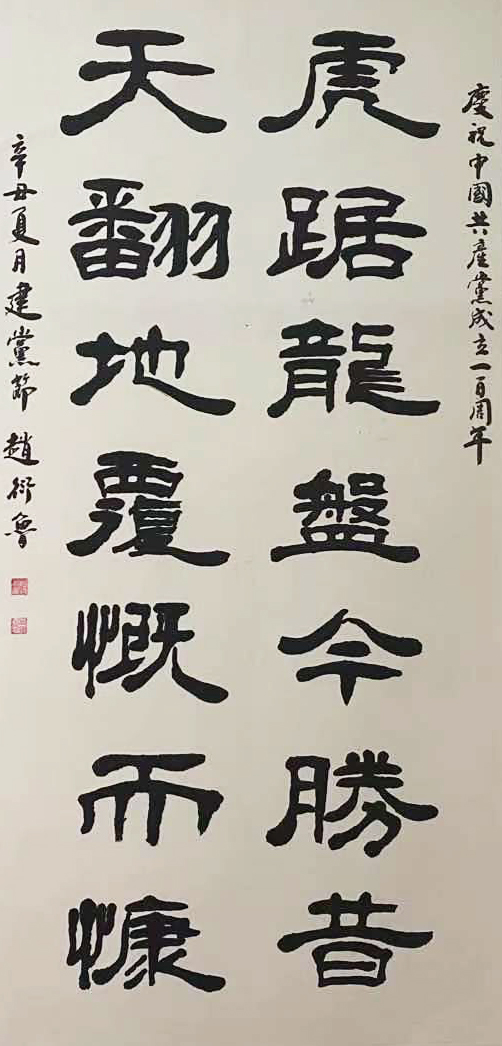 慶祝中國共產黨成立一百周年
虎踞龍盤今勝昔
天翻地覆慨而慷
辛丑夏月建黨節 趙衍魯